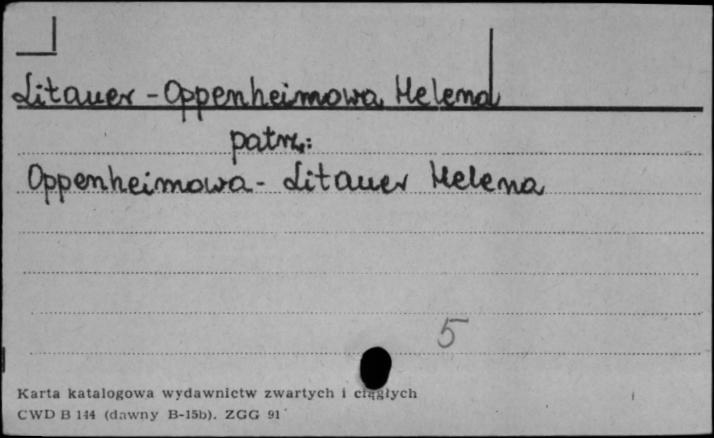 Litauer - Oppenheimowa Helena
patrz:
Oppenheimowa - Litauer Helena
5
Karta katalogowa wydawnictw zwartych i ciągłych
CWD B 144 (dawny B-15b). ZGG 91